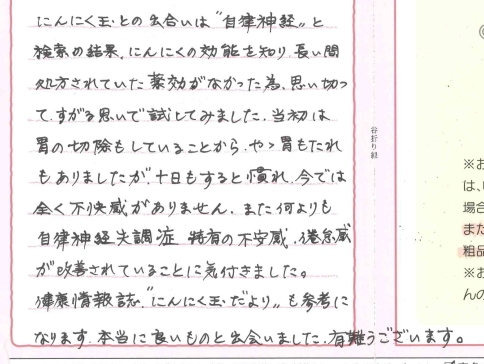 にんにく玉との出合いは"自律神経"と
検索の結果、にんにくの効能を知り、長い間
処方されていた薬効がなかった為、思い切っ
て、すがる思いで試してみました。当初は
胃の切除もしていることから、やゝ胃もたれ
もありましたが、十日もすると慣れ、今では
全く不快感がありません。また何よりも
自律神経失調症 特有の不安感、倦怠感
が改善されていることに気付きました。
健康情報誌、"にんにく玉だより"も参考に
なります。本当に良いものと出会いました。有難うございます。
谷折り線
※お
は、
場合
また
粗品
※お
んの